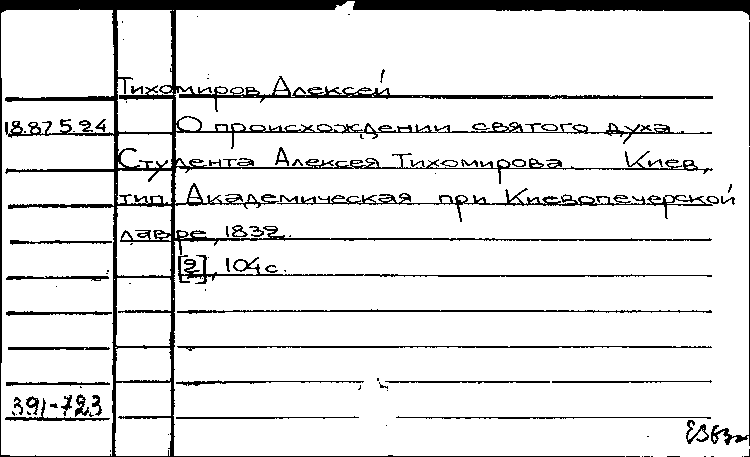 Тихомиров, Алексей
18.87.5.24 О происхождении святого духа.
Студента Алексея Тихомирова. Киев,
тип. Академическая при Киевопечерской
лавре, 1832.
[2], 104 с.
391-723